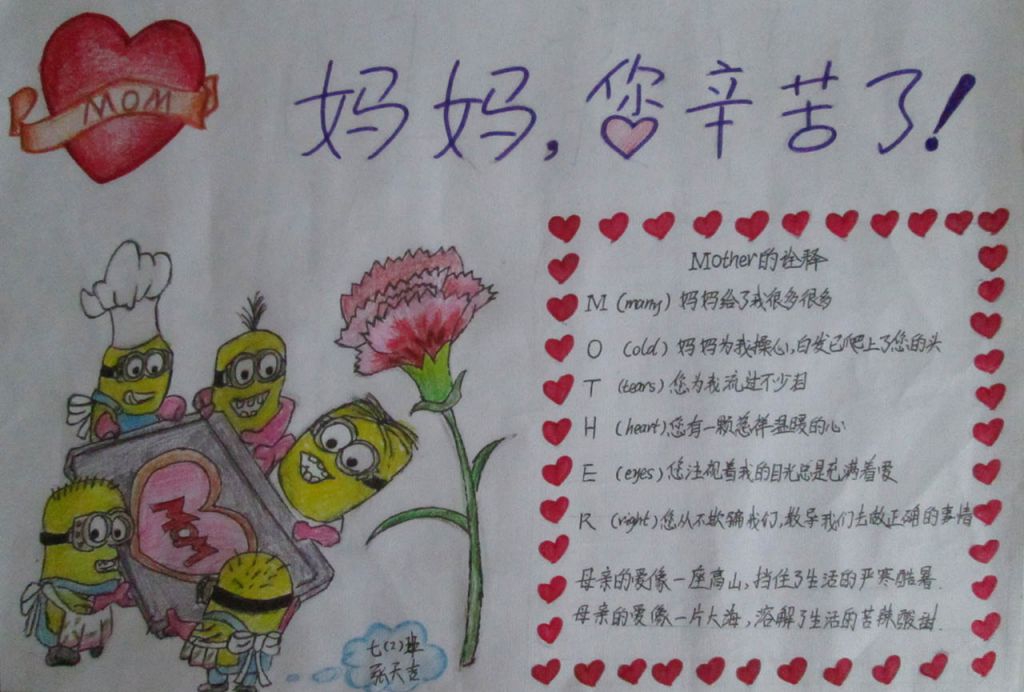 MOM
妈妈,您辛苦了!
Mother的诠释
M (many) 妈妈给了我很多很多
O (old) 妈妈为我操心,白发已爬上了您的头
T (tears) 您为我流过不少泪
H (heart) 您有一颗慈祥温暖的心
E (eyes) 您注视着我的目光总是充满着爱
R (right) 您从不欺骗我们,教导我们去做正确的事情
母亲的爱像一座高山,挡住了生活的严寒酷暑.
母亲的爱像一片大海,溶解了生活的苦辣酸甜.
MOM
七(2)班
张天吉